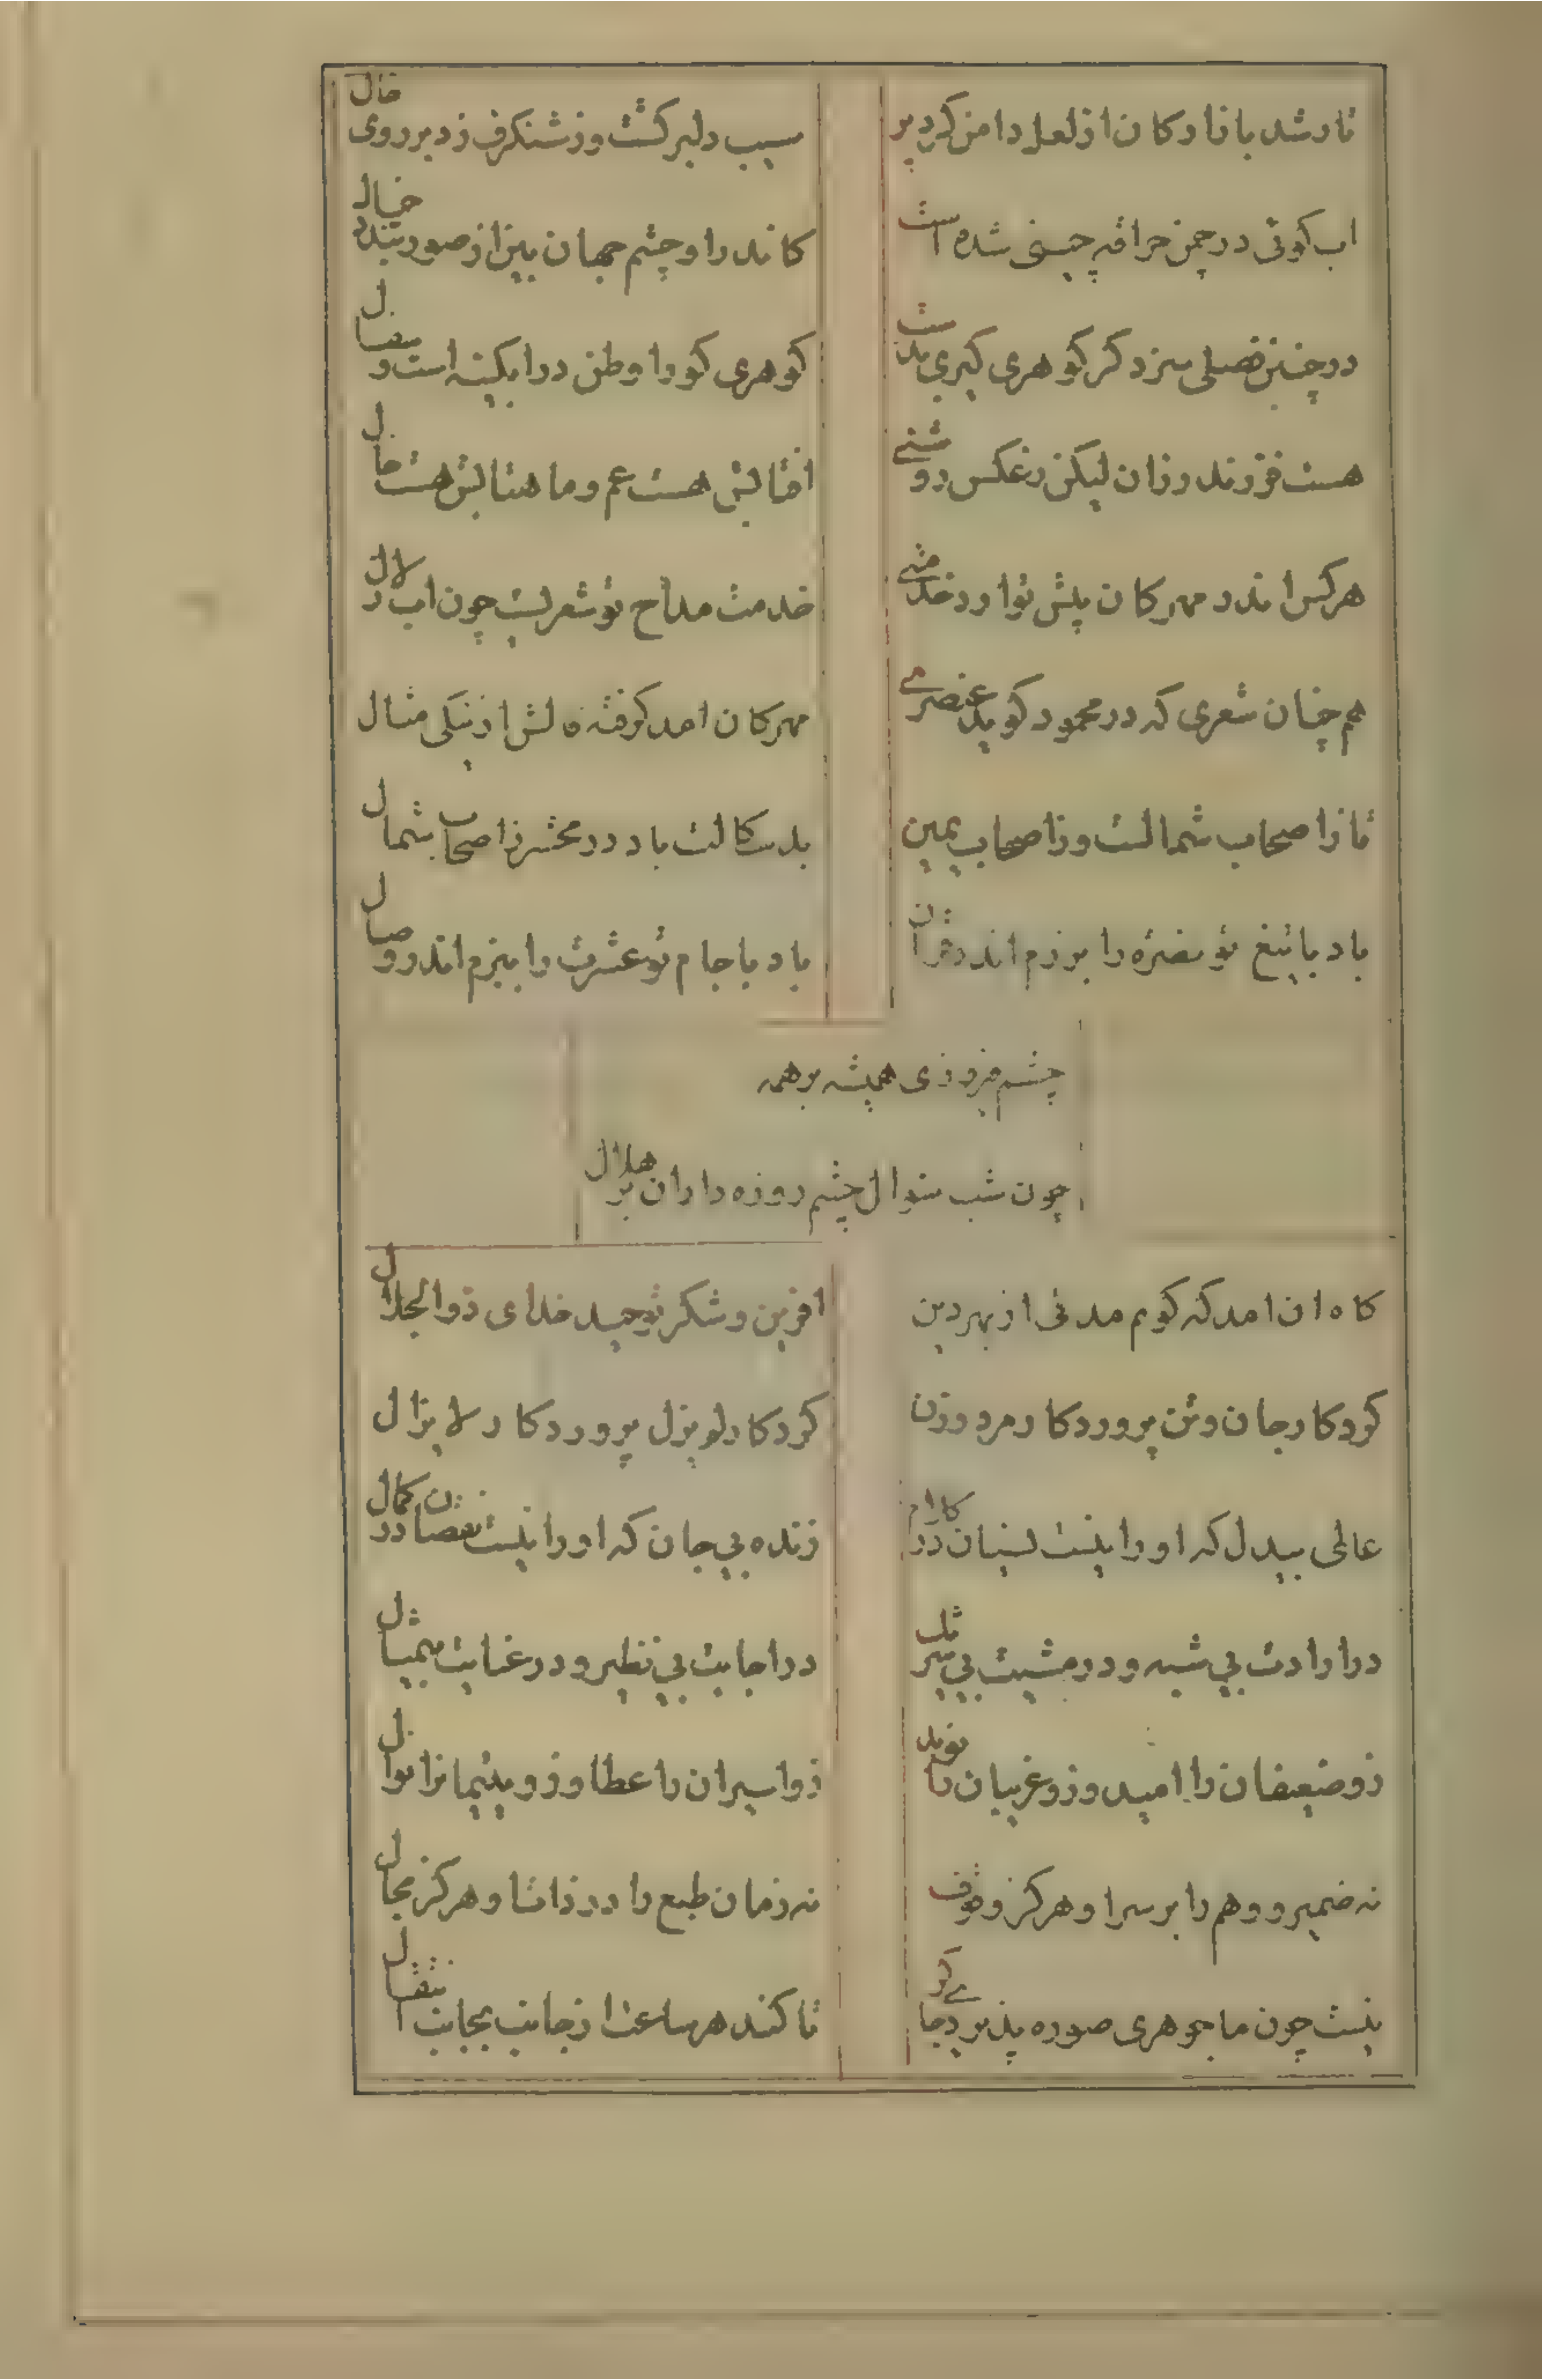 نار شد بازار کان از لعل دامن کرد پر
سیب دلبر کشت وز شنکرف زد بر روی خال
اب کوئی در چمن حراقه چینی شده است
کاندرا و چشم جهان بین از صور بیند خیال
در چنین فصلی سزد کر کوهری کیری بدست
کوهری کورا وطن در ابکینه است و سفال
هست فرزند رزان لیکن ز عکس روشنے
افتابش هست عم و ماهتابش هست خال
هر کس اندر مهرکان پیش توارد خدمتے
خدمت مداح تو شعریست چون اب زلال
هم چنان شعری که در محمود کوید عنصرے
مهرکان امد کرفته فالش از نیکی مثال
تا ز اصحاب شمالست و ز اصحاب یمین
بدسکالت باد در محشر ز اصحاب شمال
باد با تیغ تو نصرة را برزم اندر قران
باد با جام تو عشرت را ببزم اندر وصال
چشم فیروزی همیشه بر همه
چون شب شوال چشم روزه داران بر هلال
کاه ان امد که کویم مدتی از بهر دین
افرین و شکر توحید خدای ذوالجلال
کردکار جان و تن پروردکار مرد و زن
کردکار لم یزل پروردکار لا یزال
عالمی بیدل که او را نیست نسیان در کلام
زنده بی جان که او را نیست نقصان در کمال
در ارادت بی شبه و در مشیت بی شریک
در اجابت بی نظیر و در عنایت بیمثال
زو ضعیفان را امید و زو غریبان را نوید
زو اسیران را عطا و زو یتیمانرا نوال
نه ضمیر و وهم را بر سر او هرکز وقوف
نه زمان طبع را در ذات او هرکز مجال
نیست چون ما جوهری صوره پذیر و جاےکیر
تا کند هر ساعت از جانب بجانب انتقال